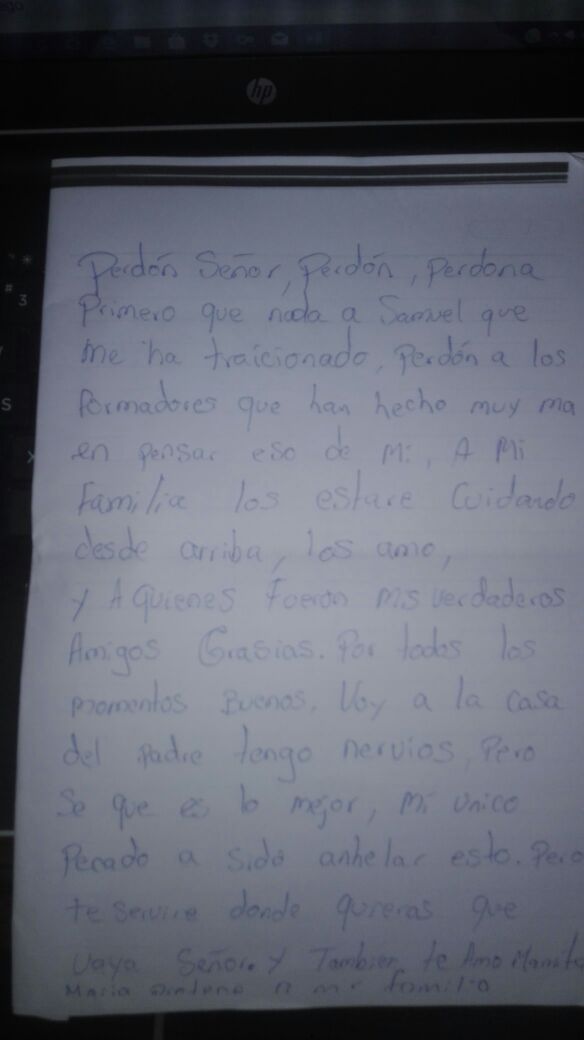 hp
Perdón Señor, Perdón, Perdona
Primero que nada a Samuel que
me ha traicionado, Perdón a los
formadores que han hecho muy ma
en pensar eso de Mi, A Mi
Familia los estare Cuidando
desde arriba, los amo,
y A Quienes Fueron mis verdaderos
Amigos Grasias. Por todos los
momentos Buenos. Voy a la casa
del Padre tengo nervios, Pero
Se que es lo mejor, Mi Unico
Pecado a sido anhelar esto. Pero
te servire donde quieras que
vaya Señor. y Tambien te Amo Mamita
Maria a mi familia